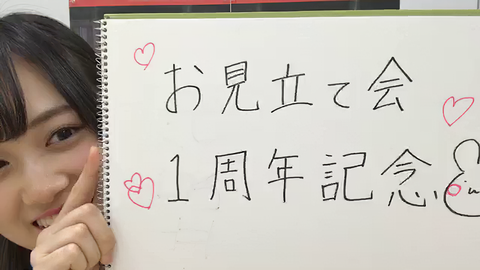 お見立て会
1周年記念